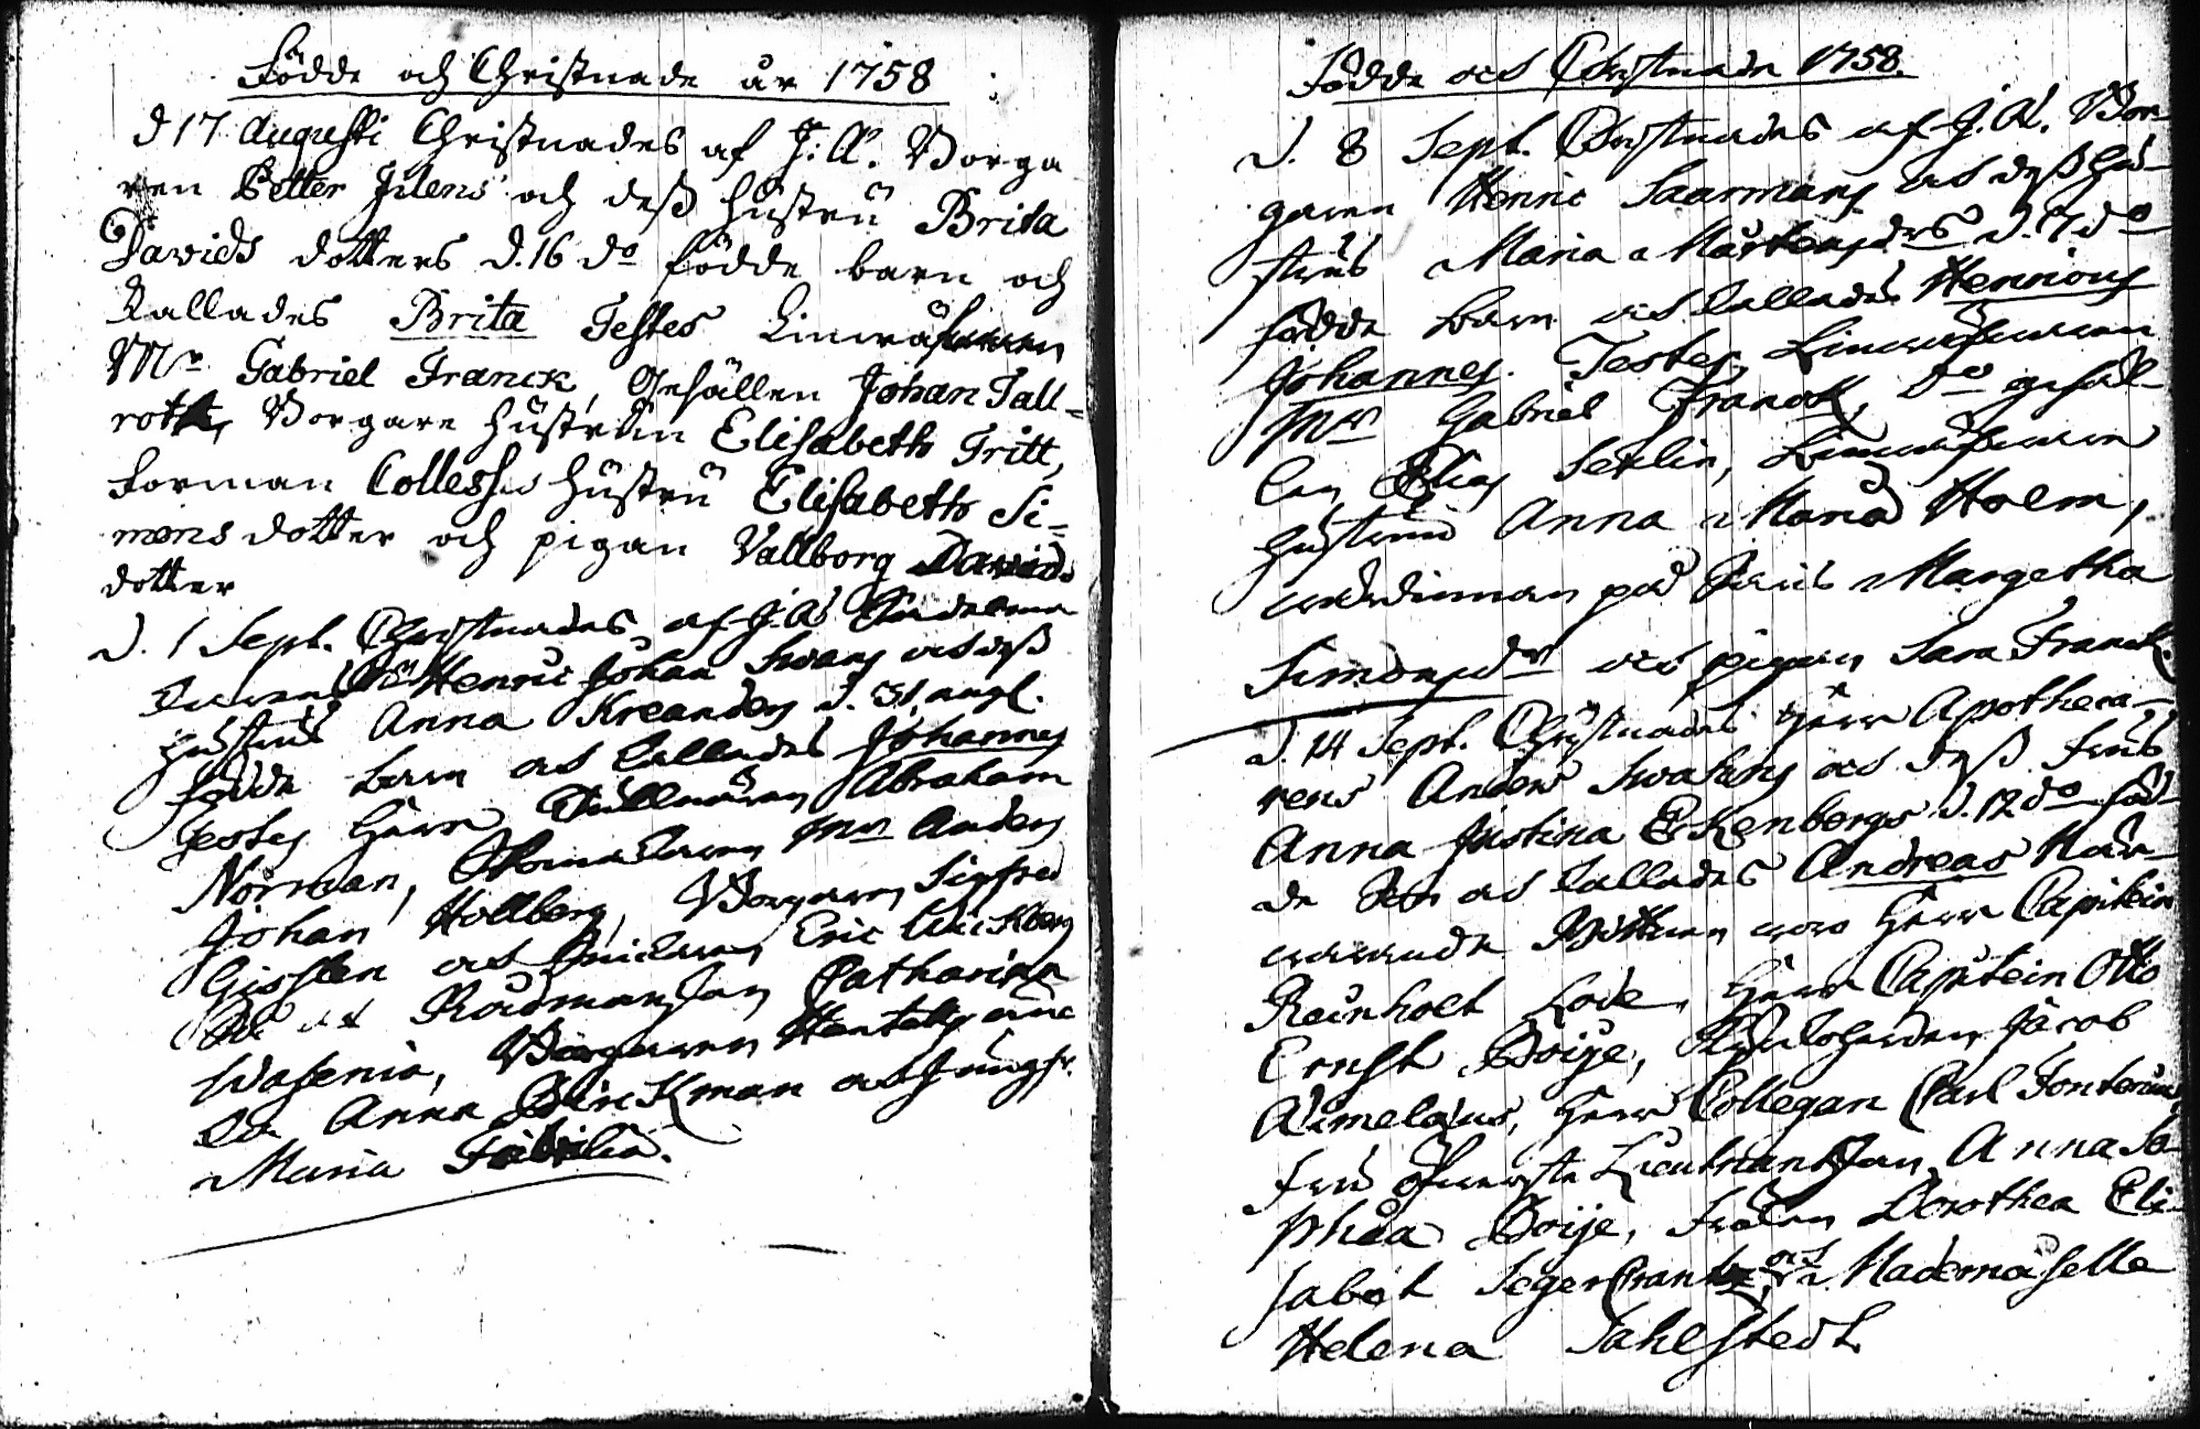 Födde och Christnade år 1758
d 17 Augusti Christnades af J: A. Borga
ren Petter Jilens och deß hustru Brita
Davids dotters d. 16 do födde barn och
Kallades Brita Testes Linwäfwaren
Mr Gabriel Franck, Gesällen Johan Tall=
roth, Borgare hustrun Elisabeth Tritt,
forman hustru Elisabeth Si=
mons dotter och pigan Vallborg Davids
dotter
D. 1 Sept. Christnades af J. A.
Henric Johan Swans och deß
hustrus Anna Kreanders d. 31 aug.
födde barn och kallades Johannes
Testes Herr Abraham
Norman, Mr Anders
Johan Hollberg, Borgaren Sigfred
Gisslen och Eric Wickberg
Rådmanskan Catharina
Wasenia, Borgaren
Anna Brinckman och Jungfr.
Maria
Födde och Christnade 1758.
D. 8 Sept. Christnades af J. A. Bor-
garen Henric Saarmans och deß hu-
strus Maria Mårtensdrs d. 7 do
födde barn och kallades Henricus
Johannes. Testes Linwäfwaren
Mr Gabriel Franck, do gesäl-
len Elias Sexlin, Linwäfwaren
hustrun Anna Maria Holm,
wärdinnan på Margetha
Simonsdr och pigan Sara Franck.
D. 14 Sept. Christnades Herr Apotheca-
rens Anders Swahns och deß Frus
Anna Justina Ekenbergs d. 12 do föd-
de Son och kallades Andreas När-
warande Wittnen woro Herr Capitein
Reinholt Lode, Herr Captein Otto
Ernst Boije, Kyrkoherden Jacob
Aimelæus, Herr Collegan Carl Fonterius,
Fru Öfwerste Lieutnantskan Anna So-
phia Boije, Fröken Dorothea Eli-
sabet Segercrantz och Mademoiselle
Helena Sahlstedt